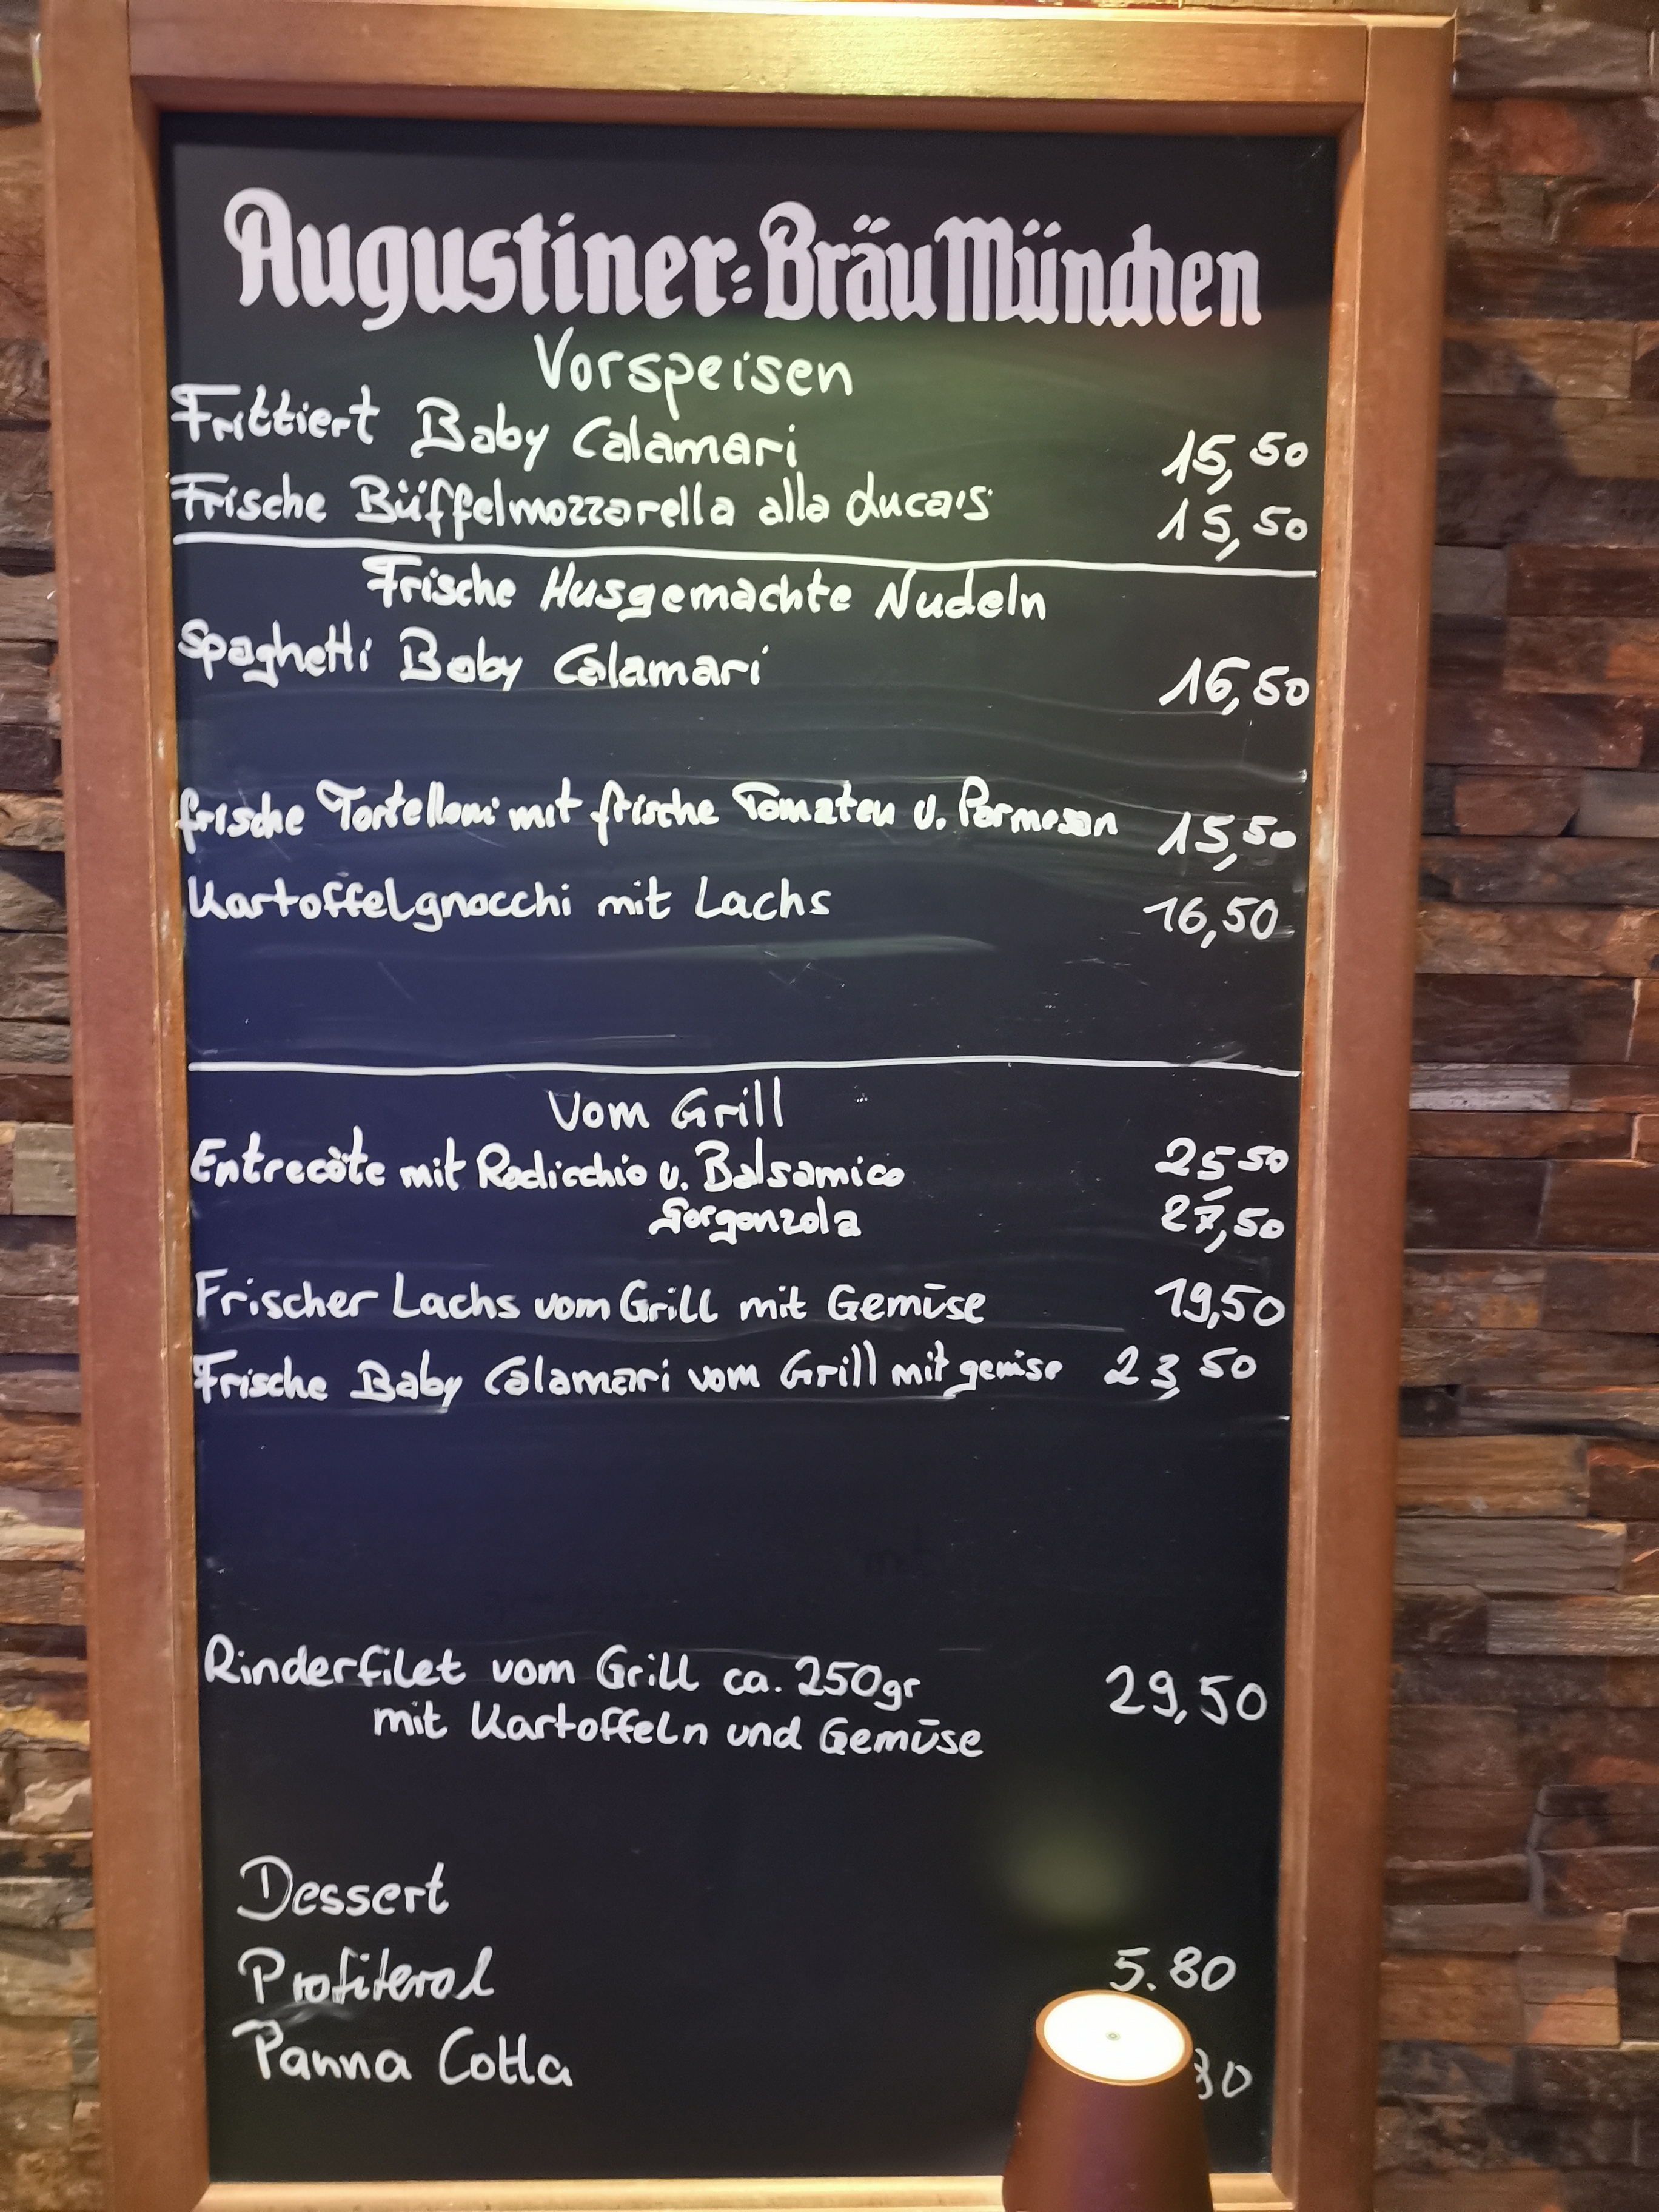 Augustiner-Bräu München
Vorspeisen
Frittiert Baby Calamari 15,50
Frische Büffelmozzarella alla duca's 15,50
Frische Husgemachte Nudeln
Spaghetti Baby Calamari 16,50
frische Tortelloni mit frische Tomaten u. Parmesan 15,50
Kartoffelgnocchi mit Lachs 16,50
Vom Grill
Entrecôte mit Radicchio u. Balsamico 25,50
Gorgonzola 27,50
Frischer Lachs vom Grill mit Gemüse 19,50
Frische Baby Calamari vom Grill mit gemüse 23,50
Rinderfilet vom Grill ca. 250gr 29,50
mit Kartoffeln und Gemüse
Dessert
Profiterol 5.80
Panna Cotta